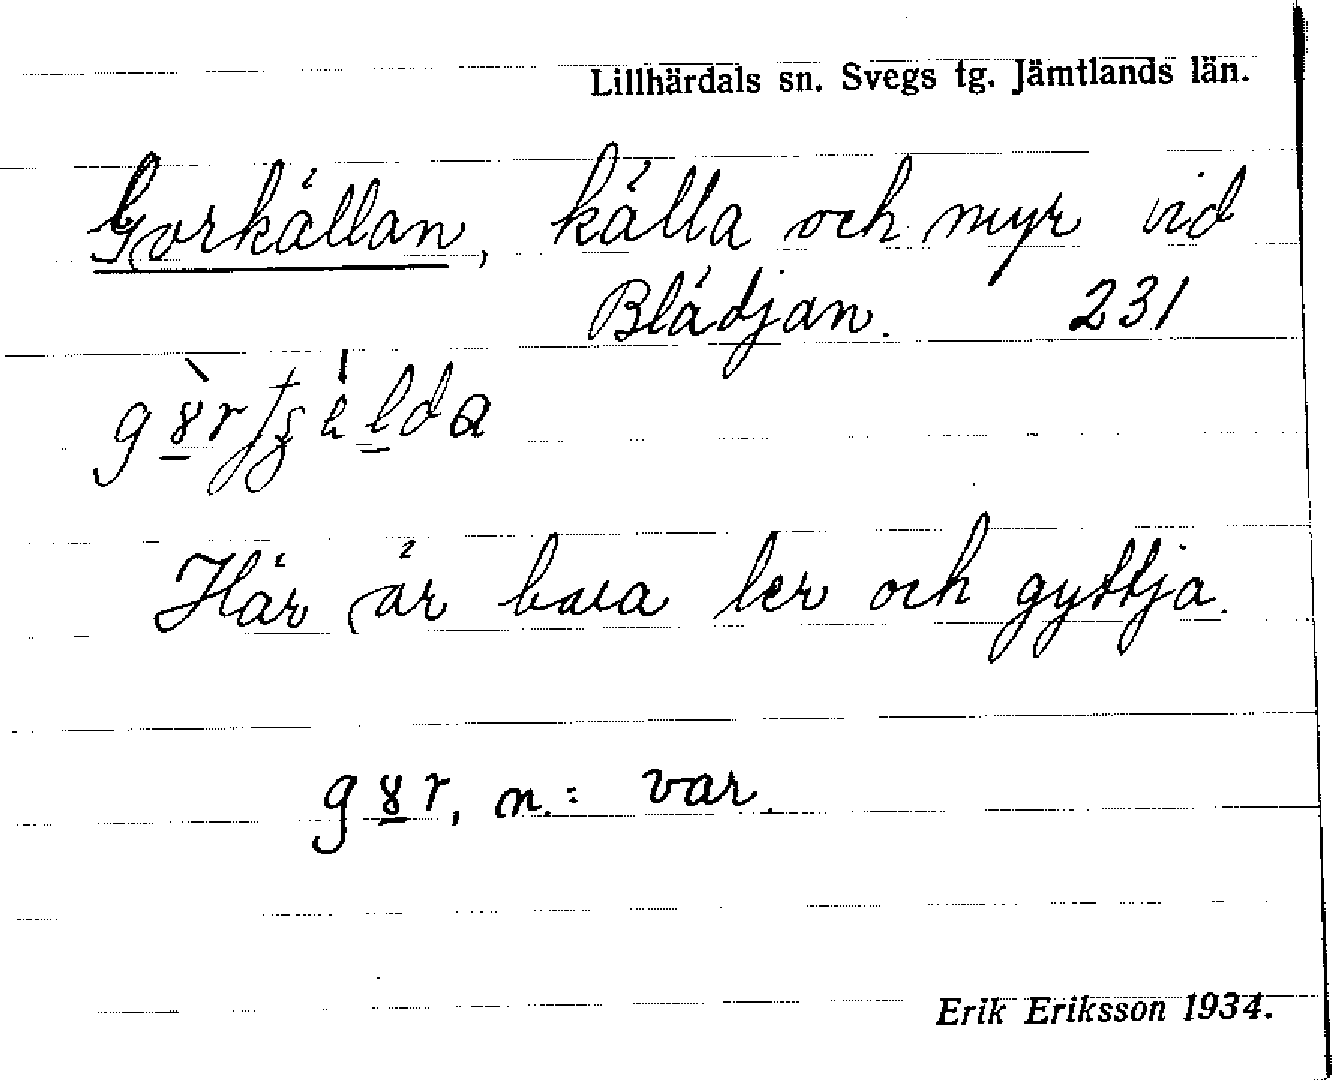 Lillhärdals sn. Svegs tg. Jämtlands län.
Gorkällan, källa och myr vid
Blädjan. 231
Här är bara ler och gyttja.
n.: var.
Erik Eriksson 1934.